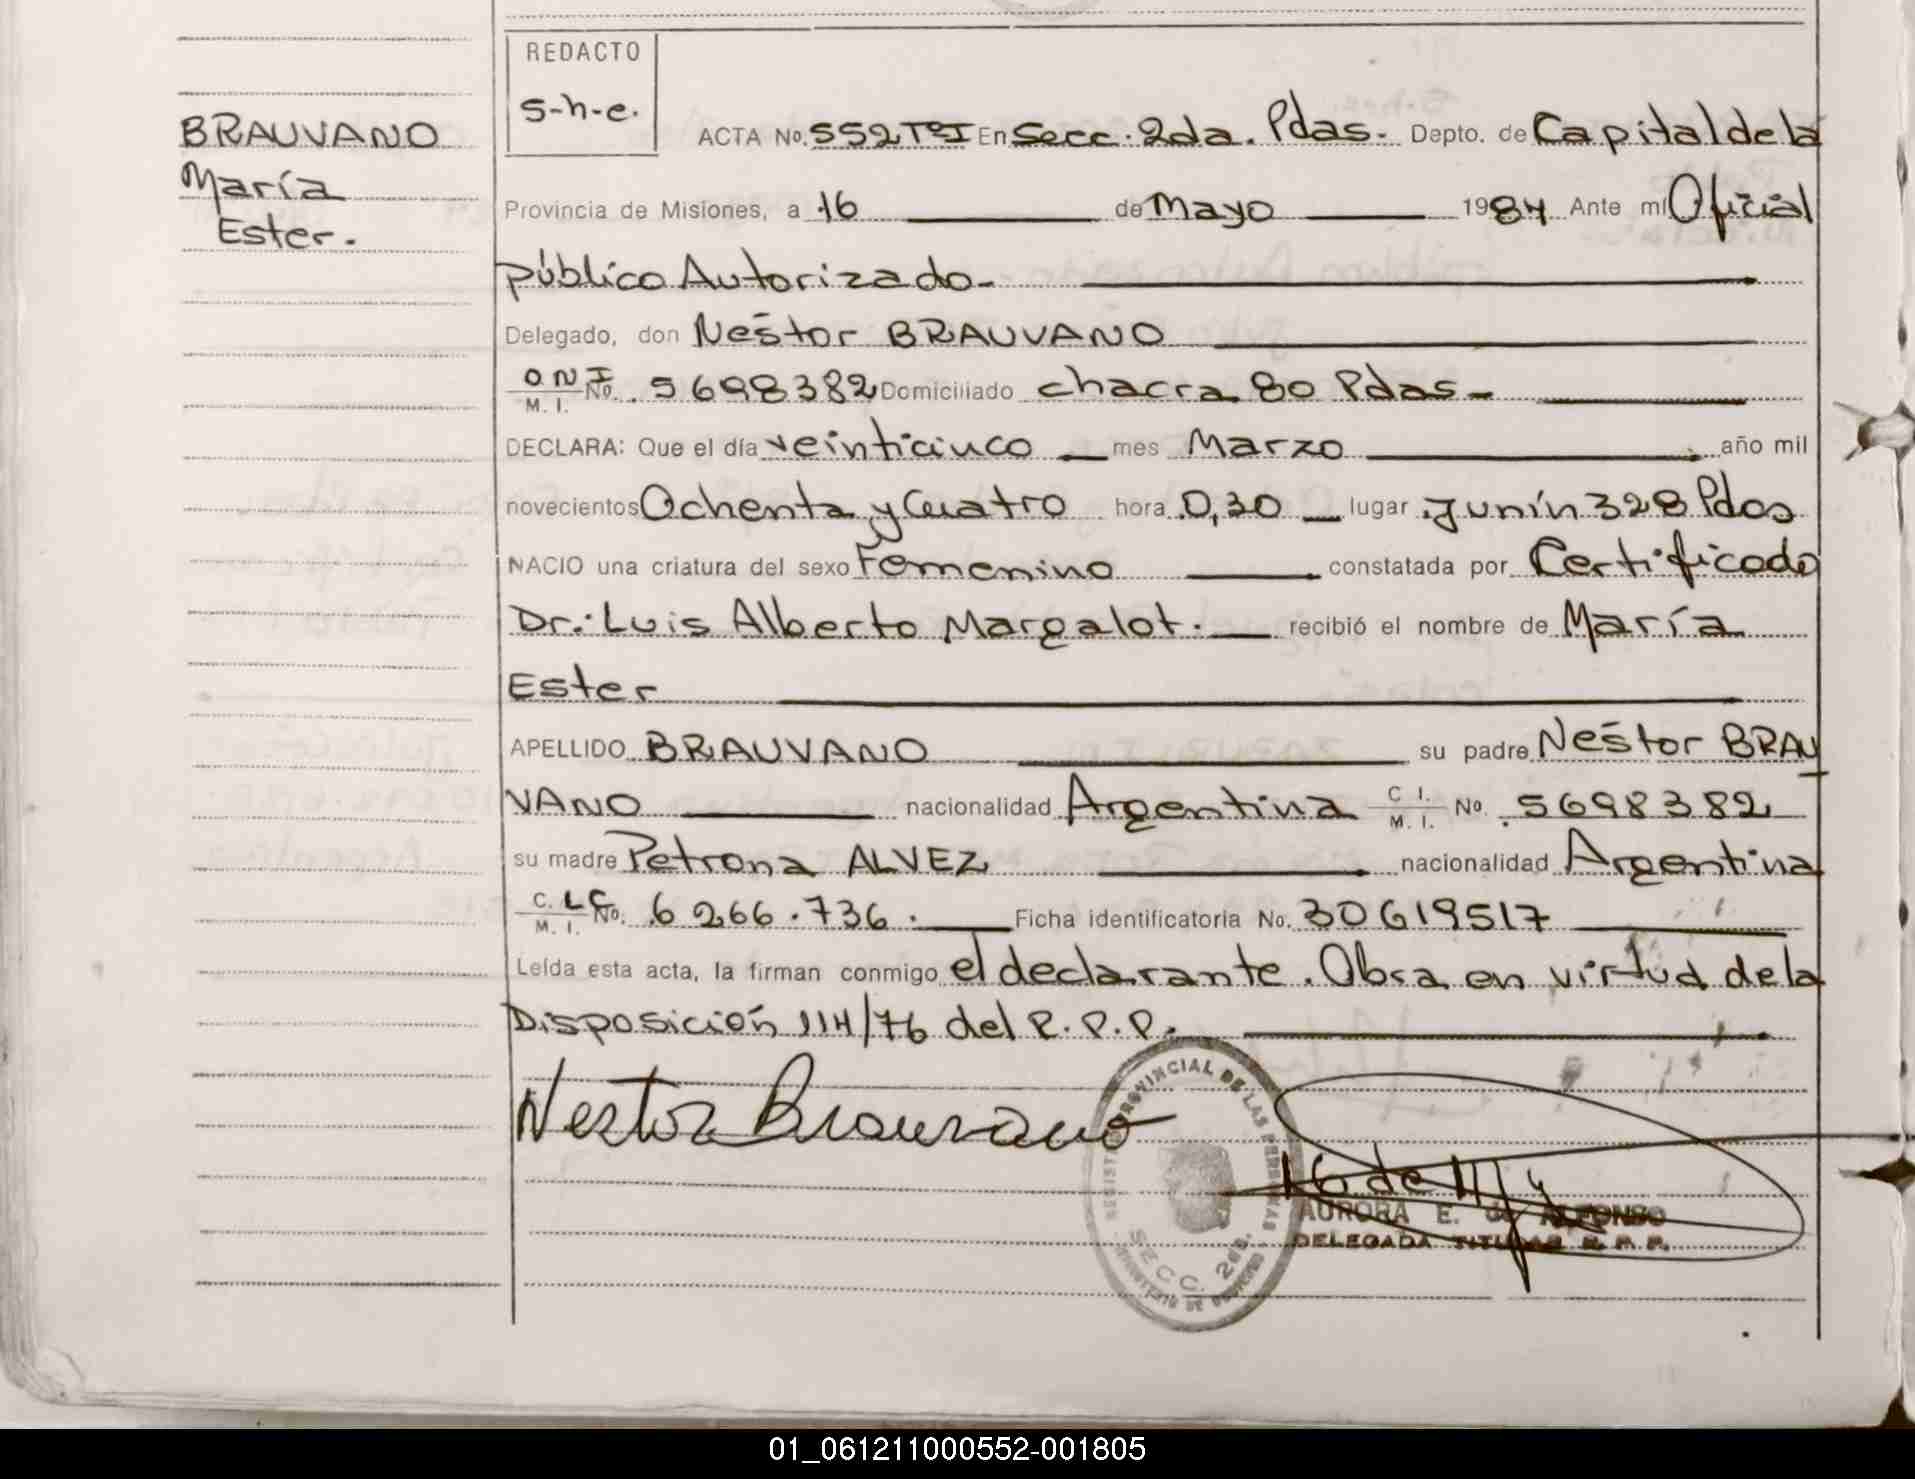 REDACTO
s-h-e.
BRAUVANO
María
Ester.
ACTA No. 552 ToI En Secc. 2da. Pdas. Depto. de Capital de la
Provincia de Misiones, a 16 de Mayo 1984 Ante mí Oficial
Público Autorizado.
Delegado, don Néstor BRAUVANO
D N I No. 5698382 Domiciliado chacra 80 Pdas.
M. I.
DECLARA: Que el día veinticinco mes Marzo año mil
novecientos Ochenta y Cuatro hora 0,30 lugar Junín 328 Pdas
NACIO una criatura del sexo Femenino constatada por Certificado
Dr. Luis Alberto Margalot. recibió el nombre de María
Ester
APELLIDO BRAUVANO su padre Néstor BRAU
VANO nacionalidad Argentina C I. M. I. No. 5698382
su madre Petrona ALVEZ nacionalidad Argentina
C. L C No. 6266.736. Ficha identificatoria No. 30619517
M. I.
Leída esta acta, la firman conmigo el declarante. Obra en virtud de la
Disposición 114/76 del R.P.P.
Nestor Brauvano
REGISTRO PROVINCIAL DE LAS PERSONAS
SECC. 2da.
MINISTERIO DE GOBIERNO
AURORA E. de ALFONSO
DELEGADA TITULAR R. P. P.
01_061211000552-001805